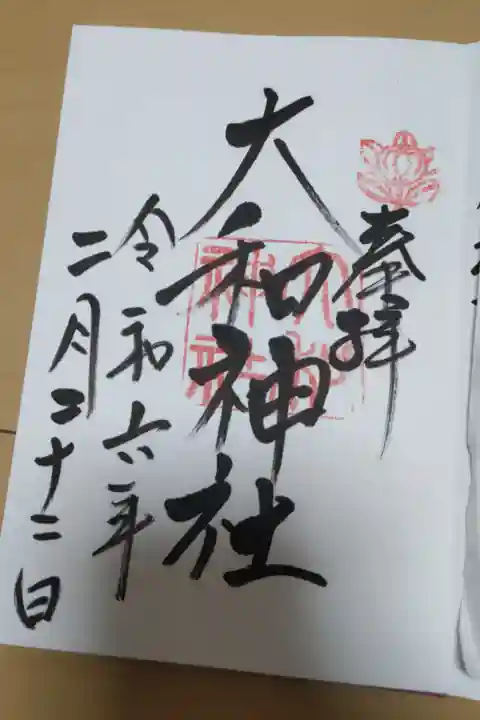 奉拝
大和神社
令和六年
二月二十二日